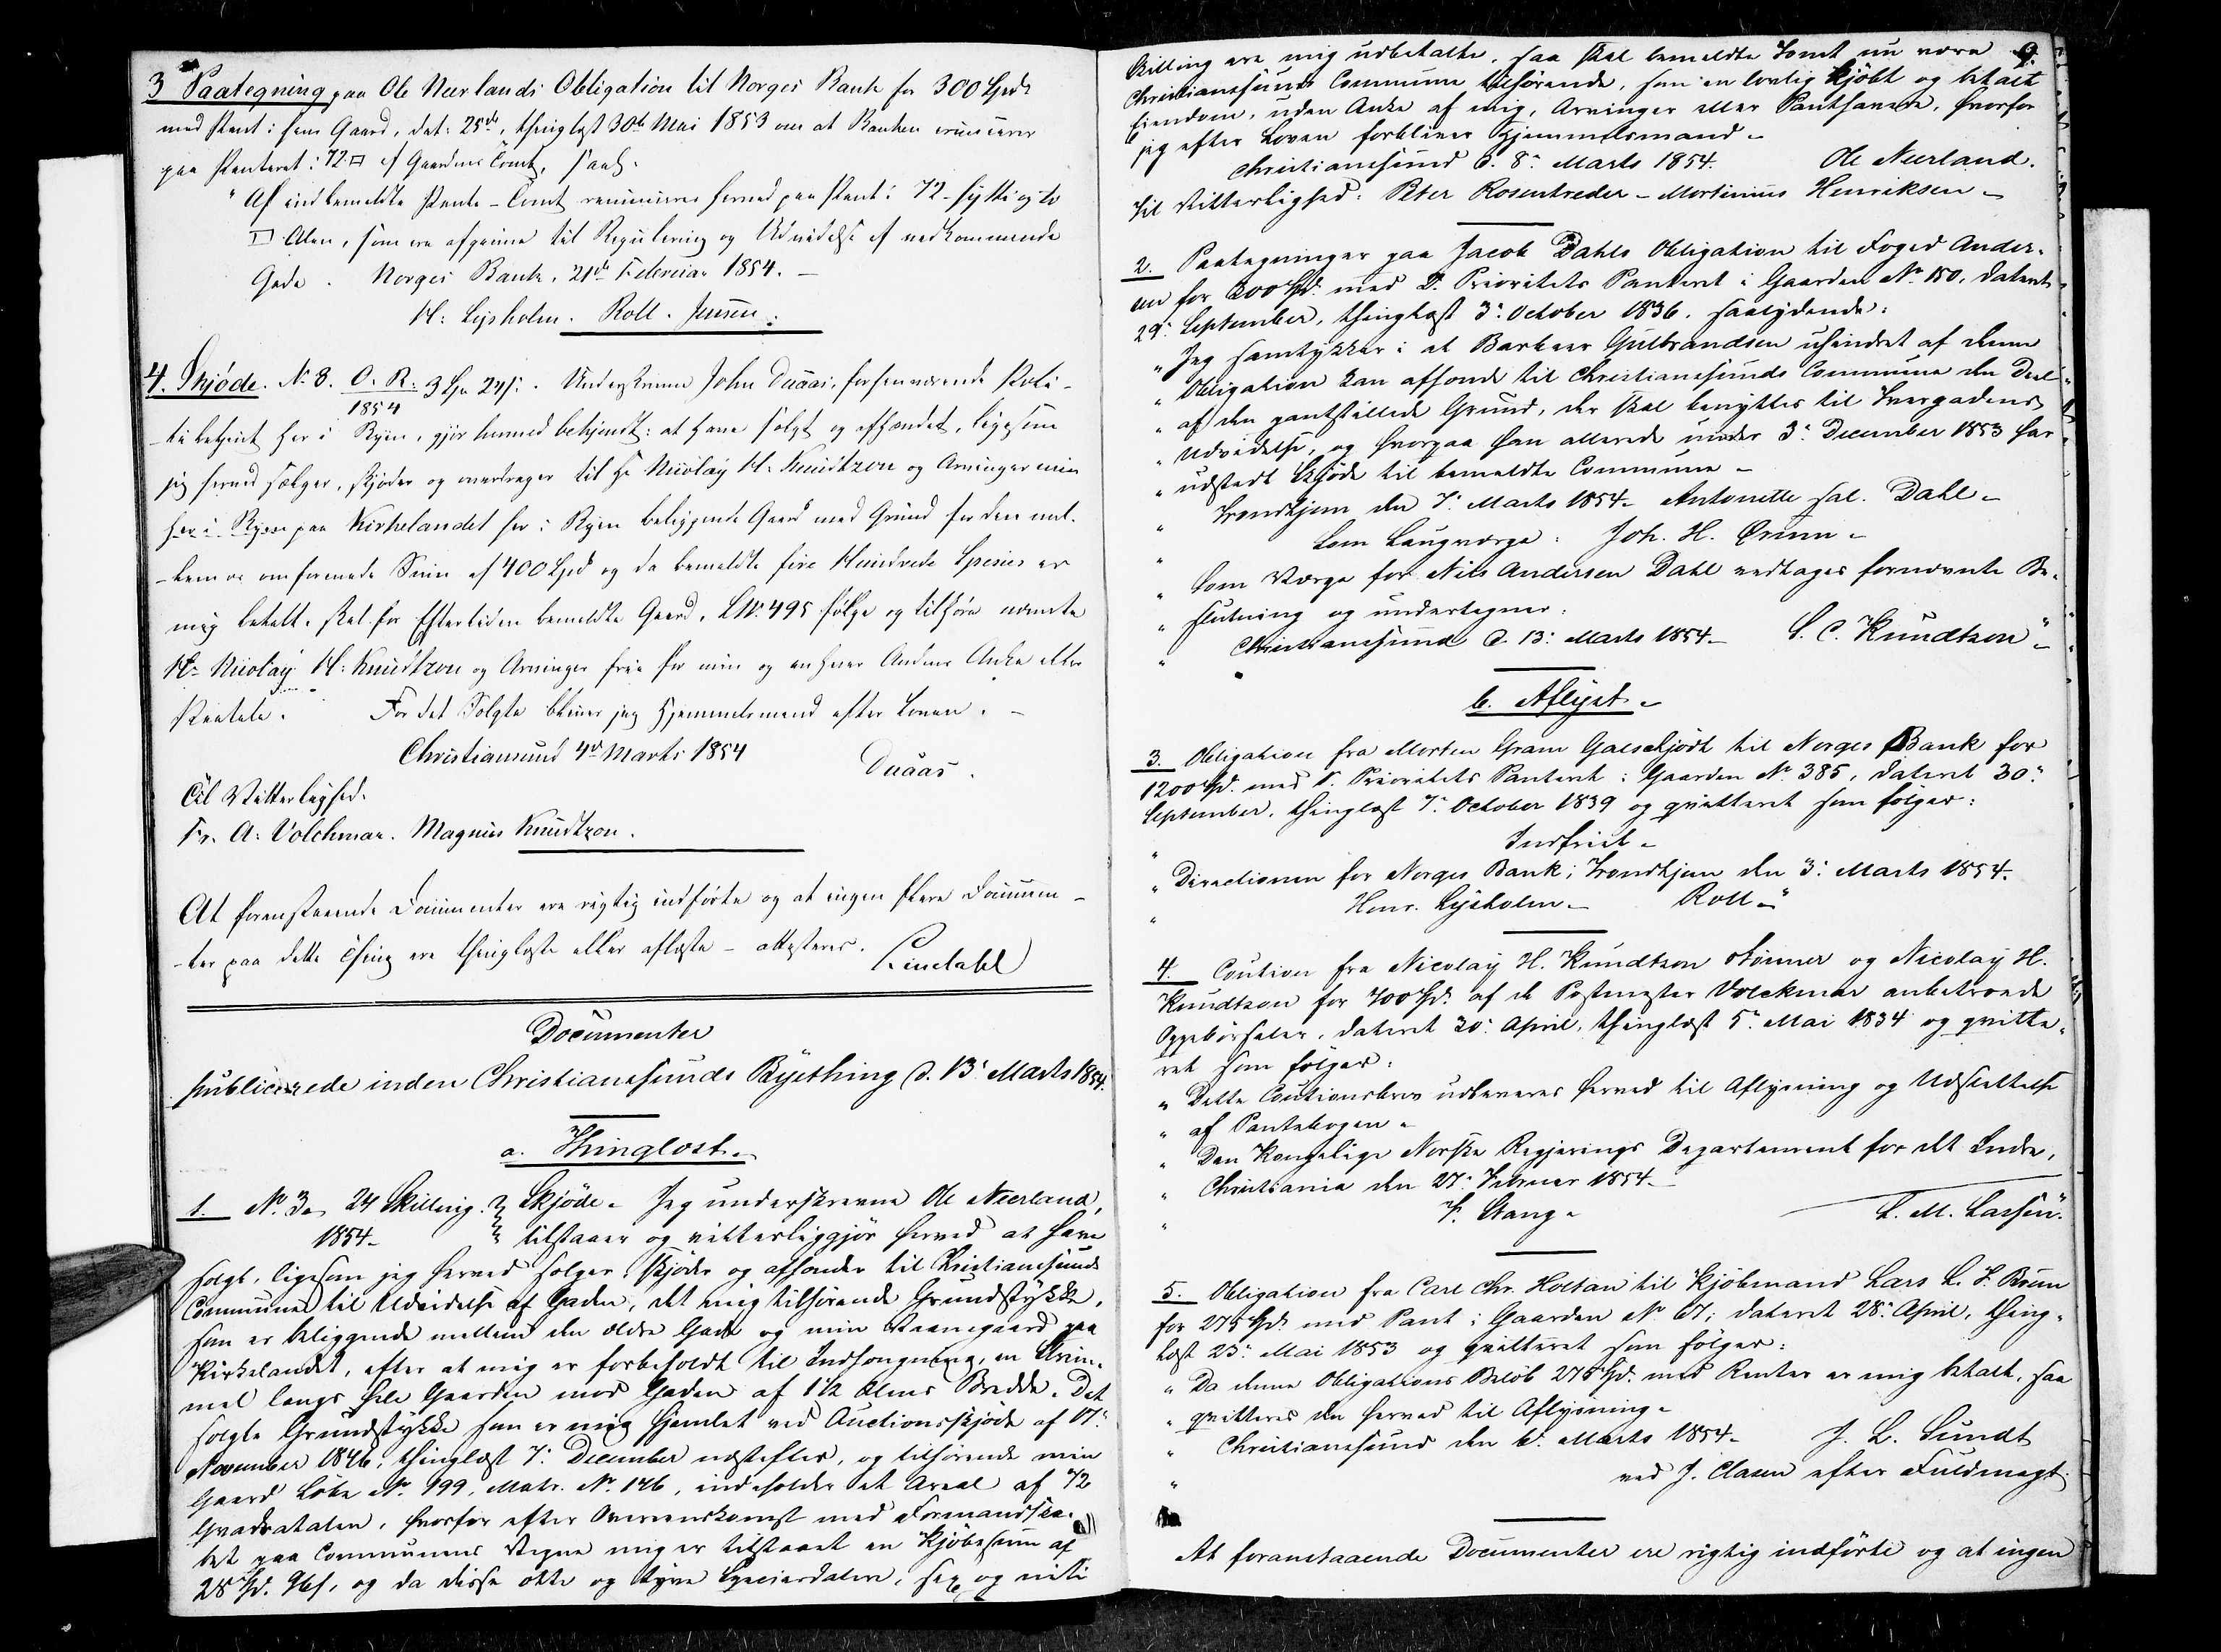 3 Paategning paa Ole Neerlands Obligation til Norges Bank for 300 Spd
med Pant i hans Gaard, dat: 25de, thinglæst 30te Mai 1853 om at Banken renuncerer
paa Panteret i 72 □ af Gaardens Tomt, saal.
"Af indbemeldte Pante-Tomt renunceres herved paa Pant i 72 - sytti og to
□ Alen, som ere afgivne til Regulering og Udvidelse af vedkommende
Gade. Norges Bank, 21de Februar 1854. -
H: Lysholm. Roll. Jensen.
4. Skjöde. No 8. O. R. 3 Sp 24 s. Underskrevne John Duaas, forhenværende Poli-
1854
-tibetjent her i Byen, gjör hermed bekjendt: at have solgt og afhændet, ligesom
jeg herved sælger, skjöder og overdrager til Hr Nicolay H: Knudtzon og Arvinger min
her i Byen paa Kirkelandet her i Byen beliggende Gaard med Grund for den mel-
-lem os omforenede Sum af 400 Spd og da bemeldte fire Hundrede Species er
mig betalt, skal for Eftertiden bemeldte Gaard, LNo 495 fölge og tilhöre nævnte
Hr Nicolay H: Knudtzon og Arvinger frie for min og enhver Andens Anke eller
Paatale. For det Solgte bliver jeg Hjemmelsmand efter Loven. -
Christiansund 4de Marts 1854
Duaas.
Til Vitterlighed.
Fr. A: Volchmar. Magnus Knudtzon.
At foranstaaende Documenter ere rigtig indförte og at ingen flere Documen-
-ter paa dette Thing ere thinglæste eller aflæste - attesteres.
Lindahl
Documenter
publicerede inden Christianssunds Byething d. 13: Marts 1854.
a. Thinglæst.
1. No 3. 24 Skilling. Skjöde. Jeg underskrevne Ole Neerland,
1854. tilstaaer og vitterliggjör herved at have
solgt, ligesom jeg herved sælger, skjöder og afhænder til Christianssunds
Commune til Udvidelse af Gaden, det mig tilhörende Grundstykke,
som er beliggende mellem den ældre Gade og min Vaanegaard paa
Kirkelandet, efter at mig er forbeholdt til Indhængning, en Strim-
mel langs hele Gaarden mod Gaden af 1 1/2 Alens Bredde. Det
solgte Grundstykke som er mig hjemlet ved Auctionsskjöde af 17:
November 1846, thinglæst 7: December næstefter, og tilhörende min
Gaard Löbe No 499, Matr. No 146, indeholder et Areal af 72
Qvadratalen, hvorfor efter Overeenskomst med Formandska-
bet paa Communens Vegne mig er tilstaaet en Kjöbesum af
28 Spd. 96 s, og da disse otte og tyve Speciesdaler, sex og niti
9.
Skilling ere mig udbetalte, saa skal bemeldte Tomt nu være
Christianssunds Commune tilhörende, som en lovlig kjöbt og betalt
Eiendom, uden Anke af mig, Arvinger eller Panthavere, hvorfor
jeg efter Loven forbliver Hjemmelsmand.
Christianssund d. 8: Marts 1854. Ole Neerland.
Til Vitterlighed: Peter Rosentreder - Mortinius Henriksen
2. Paategninger paa Jacob Dahls Obligation til Foged Ander-
sen for 300 Spd. med 2. Prioritets Panteret i Gaarden No 150, dateret
29: September, thinglæst 3: October 1836, saalydende:
"Jeg samtykker i at Gulbrandsen uhindret af denne
"Obligation kan afhænde til Christianssunds Commune den Deel
"af den pantstillede Grund, der skal benyttes til Tvergadens
"Udvidelse, og hvorpaa han allerede under 3: December 1853 har
"udstedt Skjöde til bemeldte Commune
" Trondhjem den 7: Marts 1854. Antonette sal. Dahl.
" Som Laugværge: Joh. H. Grim
" Som Værge for Nils Andersen Dahl vedtages fornævnte Be-
" slutning og undertegner:
" Christianssund d. 13: Marts 1854. S. C. Knudtzon"
b. Aflyst.
3. Obligation fra Morten Gram Galschjödt til Norges Bank for
1200 Spd. med 1. Prioritets Panteret i Gaarden No 385, dateret 30:
September, thinglæst 7: October 1839 og qvitteret som fölger:
" Indfriet
"Directionen for Norges Bank i Trondhjem den 3: Marts 1854.
" Henr. Lysholm. Roll"
4. Caution fra Nicolay H. Knudtzon Sönner og Nicolay H.
Knudtzon for 700 Spd. af de Postmester Volckmar anbetroede
Oppebörseler, dateret 30: April, thinglæst 5: Mai 1834 og qvitte-
ret som fölger:
"Dette Cautionsbrev udleveres herved til Aflysning og Udslettelse
"af Pantebogen.
"Den Kongelige Norske Regjerings Departement for det Indre,
" Christiania den 27: Februar 1854.
" F. Stang. L. M. Lassen."
5. Obligation fra Carl Chr. Holtan til Kjöbmand Lars L. S. Brun
for 275 Spd. med Pant i Gaarden No 67, dateret 28: April, thing-
læst 23: Mai 1853 og qvitteret som fölger:
"Da denne Obligations Belöb 275 Spd. med Renter er mig betalt, saa
" qvitteres den herved til Aflysning.
" Christianssund den 6: Marts 1854. J. L. Sundt
" ved J. Clasen efter Fuldmagt.
At foranstaaende Documenter ere rigtig indförte og at ingen